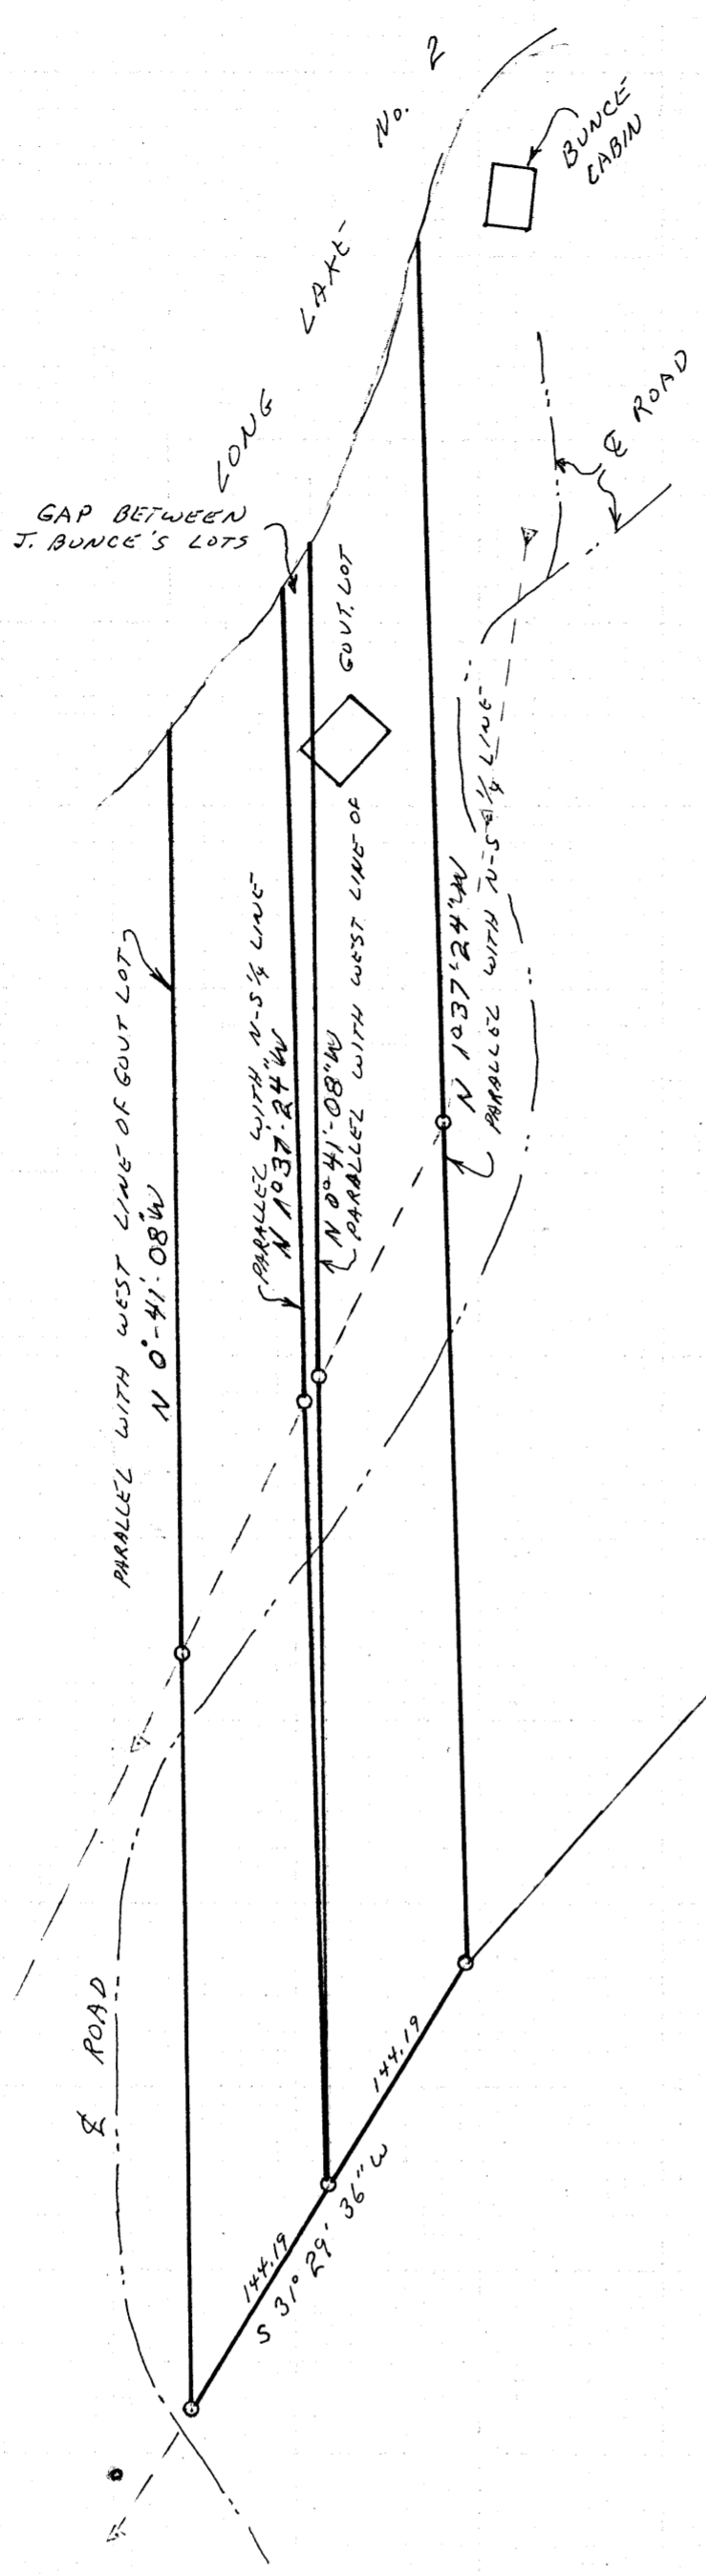 No. 2
LONG LAKE
BUNCE
CABIN
℄ ROAD
GAP BETWEEN
J. BUNCE'S LOTS
PARALLEL WITH WEST LINE OF GOVT LOT
N 0°-41'-08"W
PARALLEL WITH N-S 1/4 LINE
N 1°37'-24"W
N 0°-41'-08"W
PARALLEL WITH WEST LINE OF GOVT. LOT
N 1°37'-24"W
PARALLEL WITH N-S 1/4 LINE
℄ ROAD
144.19
144.19
S 31° 29' 36" W